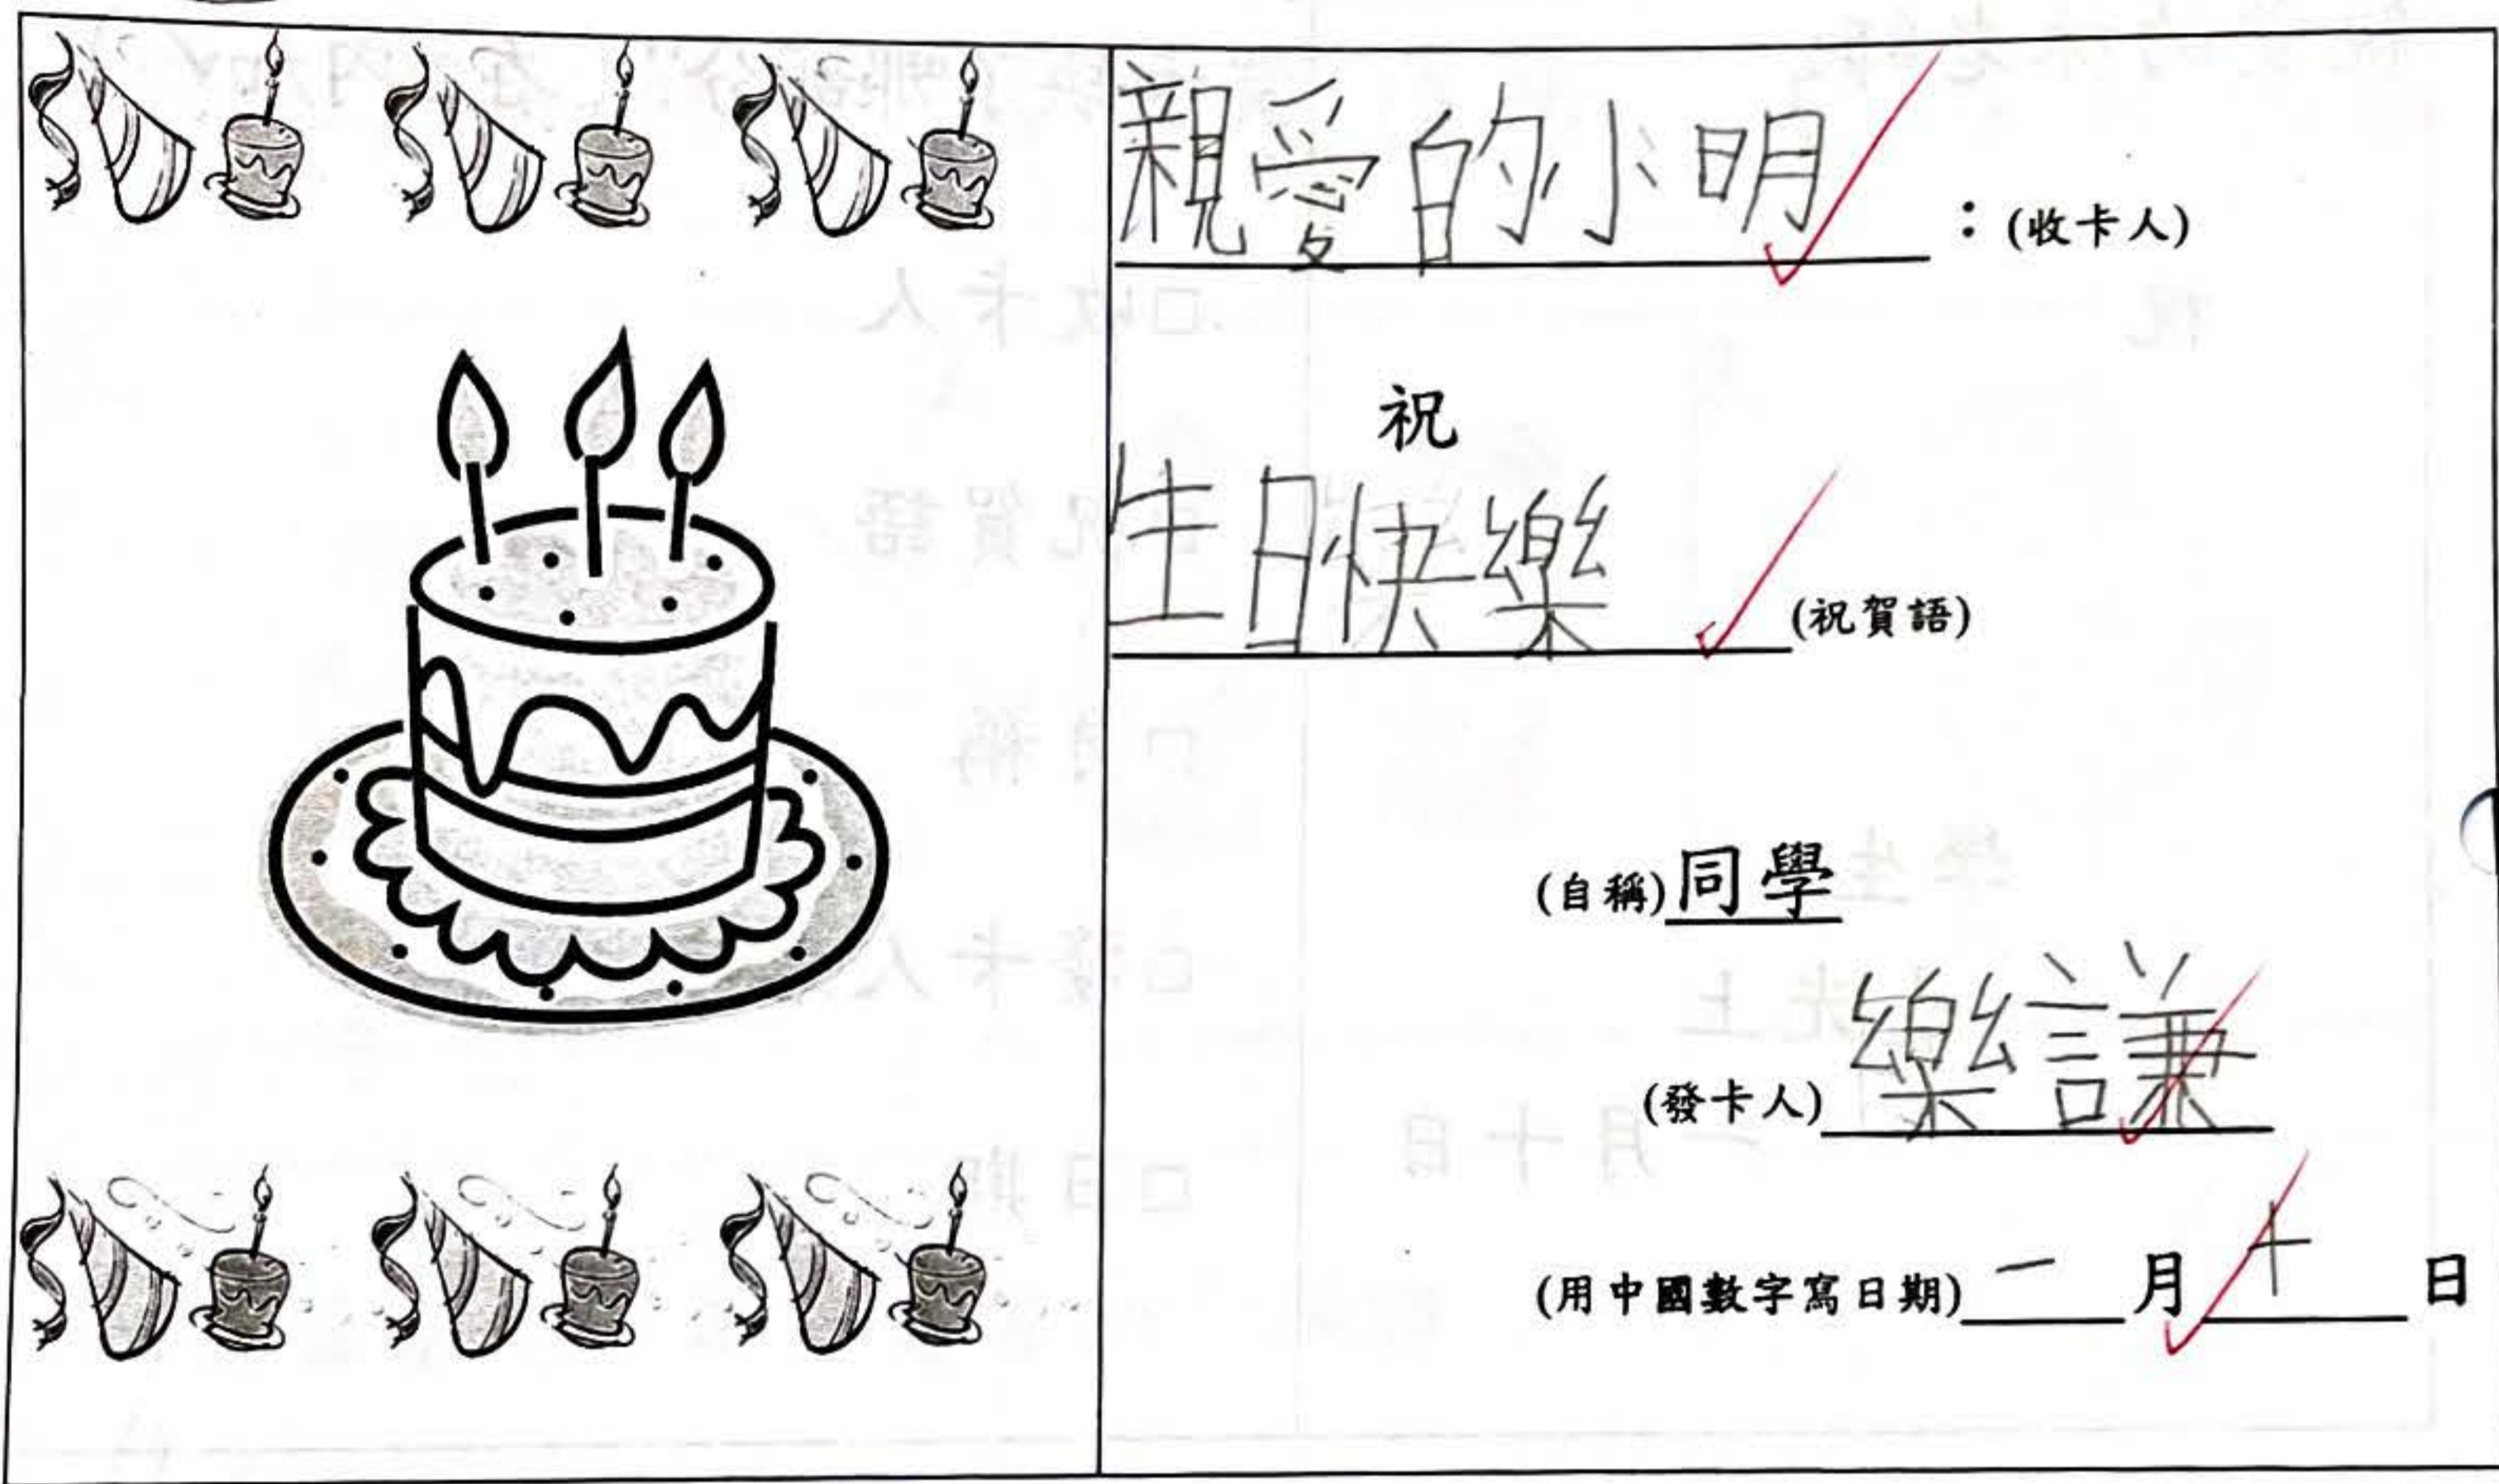 親愛的小明：(收卡人)
祝
生日快樂(祝賀語)
(自稱)同學
(發卡人)樂謙
(用中國數字寫日期)一月十日